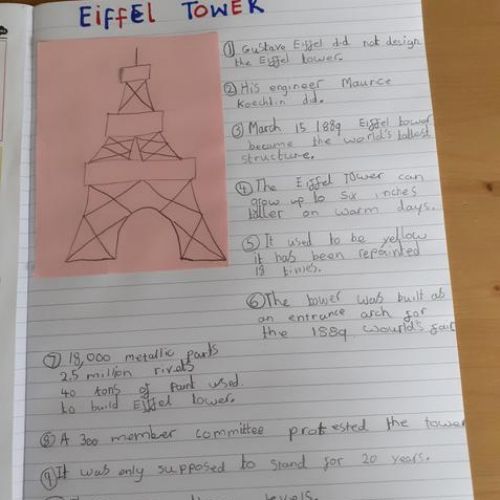 EiffEl TowER
① Gustave Eiffel did not design
the Eiffel tower.
② His engineer Maurice
Koechlin did.
③ March 15 1889 Eiffel tower
became the world's tallest
structure.
④ The Eiffel Tower can
grow up to six inches
taller on warm days.
⑤ It used to be yellow
it has been repainted
18 times.
⑥ The tower was built as
an entrance arch for
the 1889 world's fair
⑦ 18,000 metallic parts
2.5 million rivets
40 tons of paint used
to build Eiffel tower.
⑧ A 300 member committee protested the tower
⑨ It was only supposed to stand for 20 years.
levels.